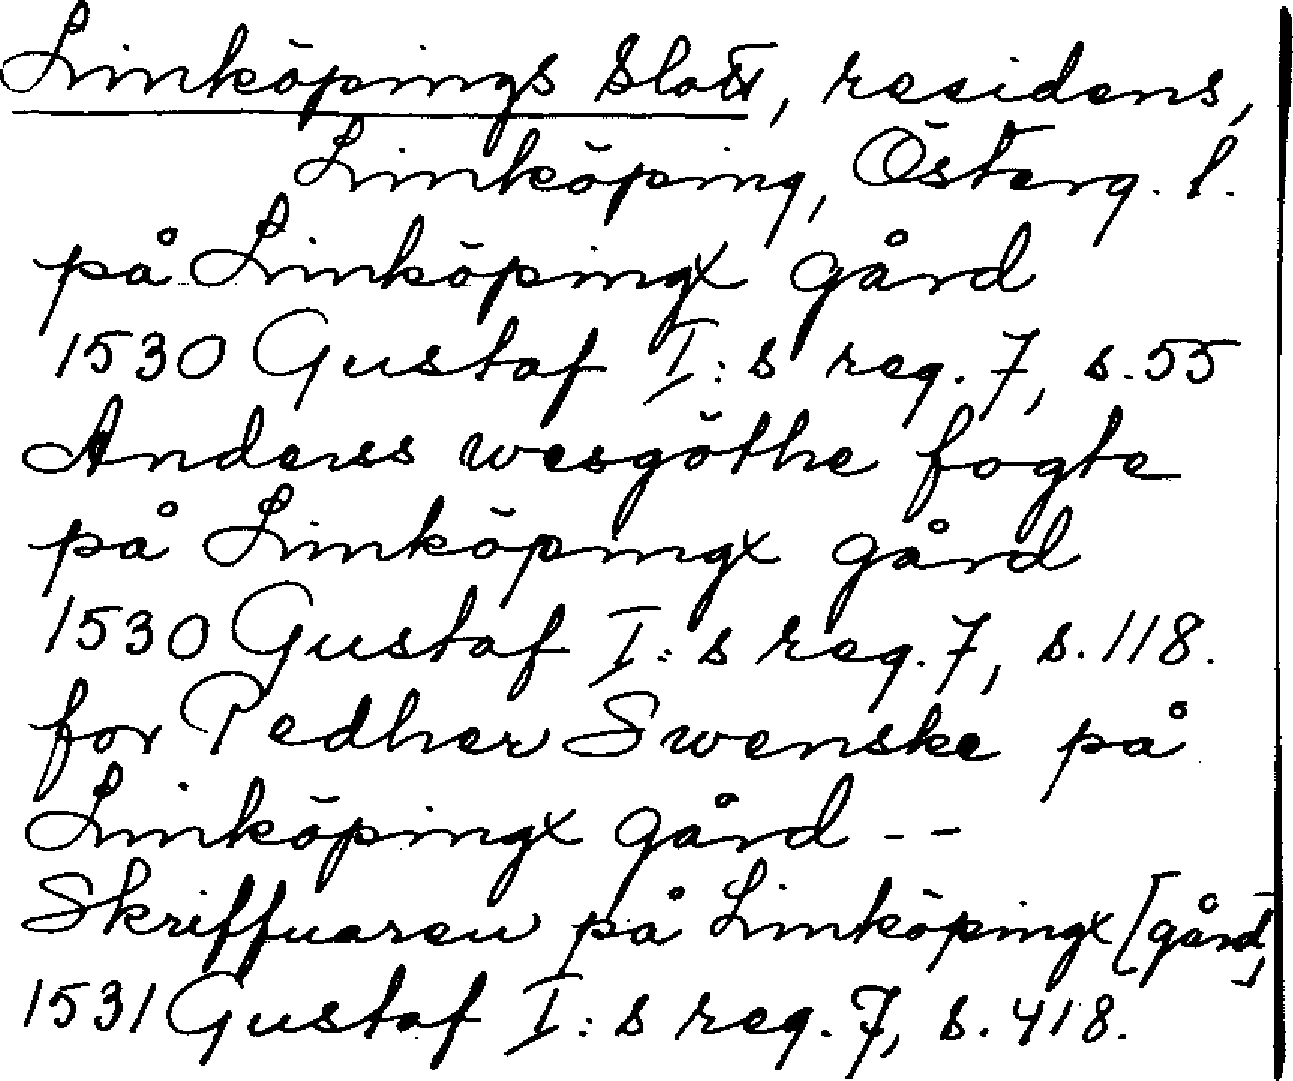 Linköpings slott, residens,
Linköping, Österg. l.
på Linköpingx gård
1530 Gustaf I:s reg. 7, s. 55
Anderss wesgöthe fogte
på Linköpingx gård
1530 Gustaf I:s reg. 7, s. 118.
for Pedher Swenske på
Linköpingx gård --
Skriffuaren på Linköpingx [gård]
1531 Gustaf I:s reg. 7, s. 418.